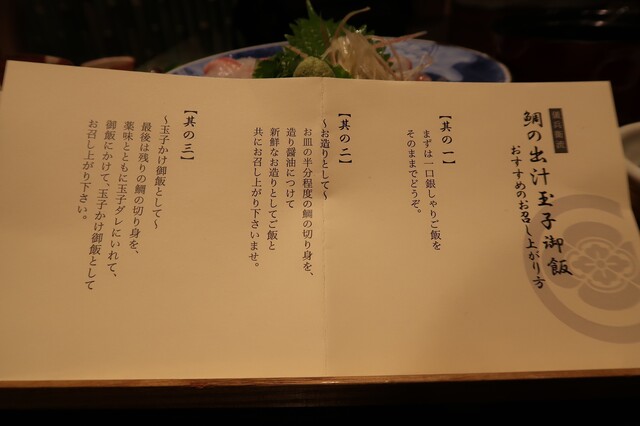 鯛の出汁玉子御飯
おすすめのお召し上がり方
【其の一】
まずは一口銀しゃりご飯を
そのままでどうぞ。
【其の二】
～お造りとして～
お皿の半分程度の鯛の切り身を、
造り醤油につけて
新鮮なお造りとしてご飯と
共にお召し上がり下さいませ。
【其の三】
～玉子かけ御飯として～
最後は残りの鯛の切り身を、
薬味とともに玉子ダレにいれて、
御飯にかけて、玉子かけ御飯として
お召し上がり下さい。